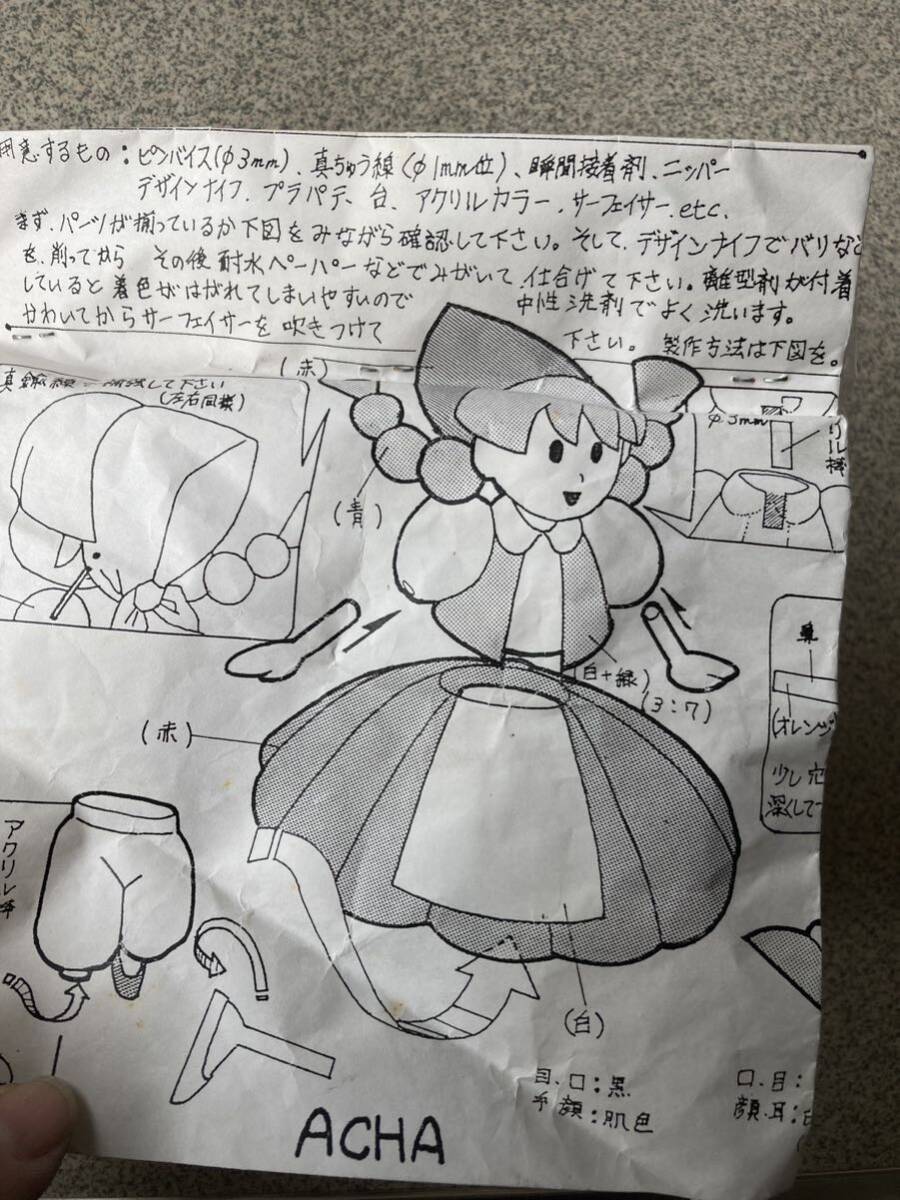 用意するもの：ピンバイス(φ3mm)、真ちゅう線(φ1mm位)、瞬間接着剤、ニッパー
デザインナイフ、プラパテ、台、アクリルカラー、サーフェイサー、etc.
まず、パーツが揃っているか下図をみながら確認して下さい。そして、デザインナイフでバリなど
を、削ってから その後耐水ペーパーなどでみがいて仕合げて下さい。離型剤が付着
していると着色がはがれてしまいやすいので 中性洗剤でよく洗います。
かわいてからサーフェイサーを吹きつけて 下さい。製作方法は下図を。
して下さい
(左右同様)
(赤)
φ3mm
リル棒
(青)
(白+緑)
(3:7)
(オレンジ
少し穴
深くしてつ
(赤)
アクリル棒
(白)
目、口：黒
手、顔：肌色
口、目：
顔、耳：
ACHA